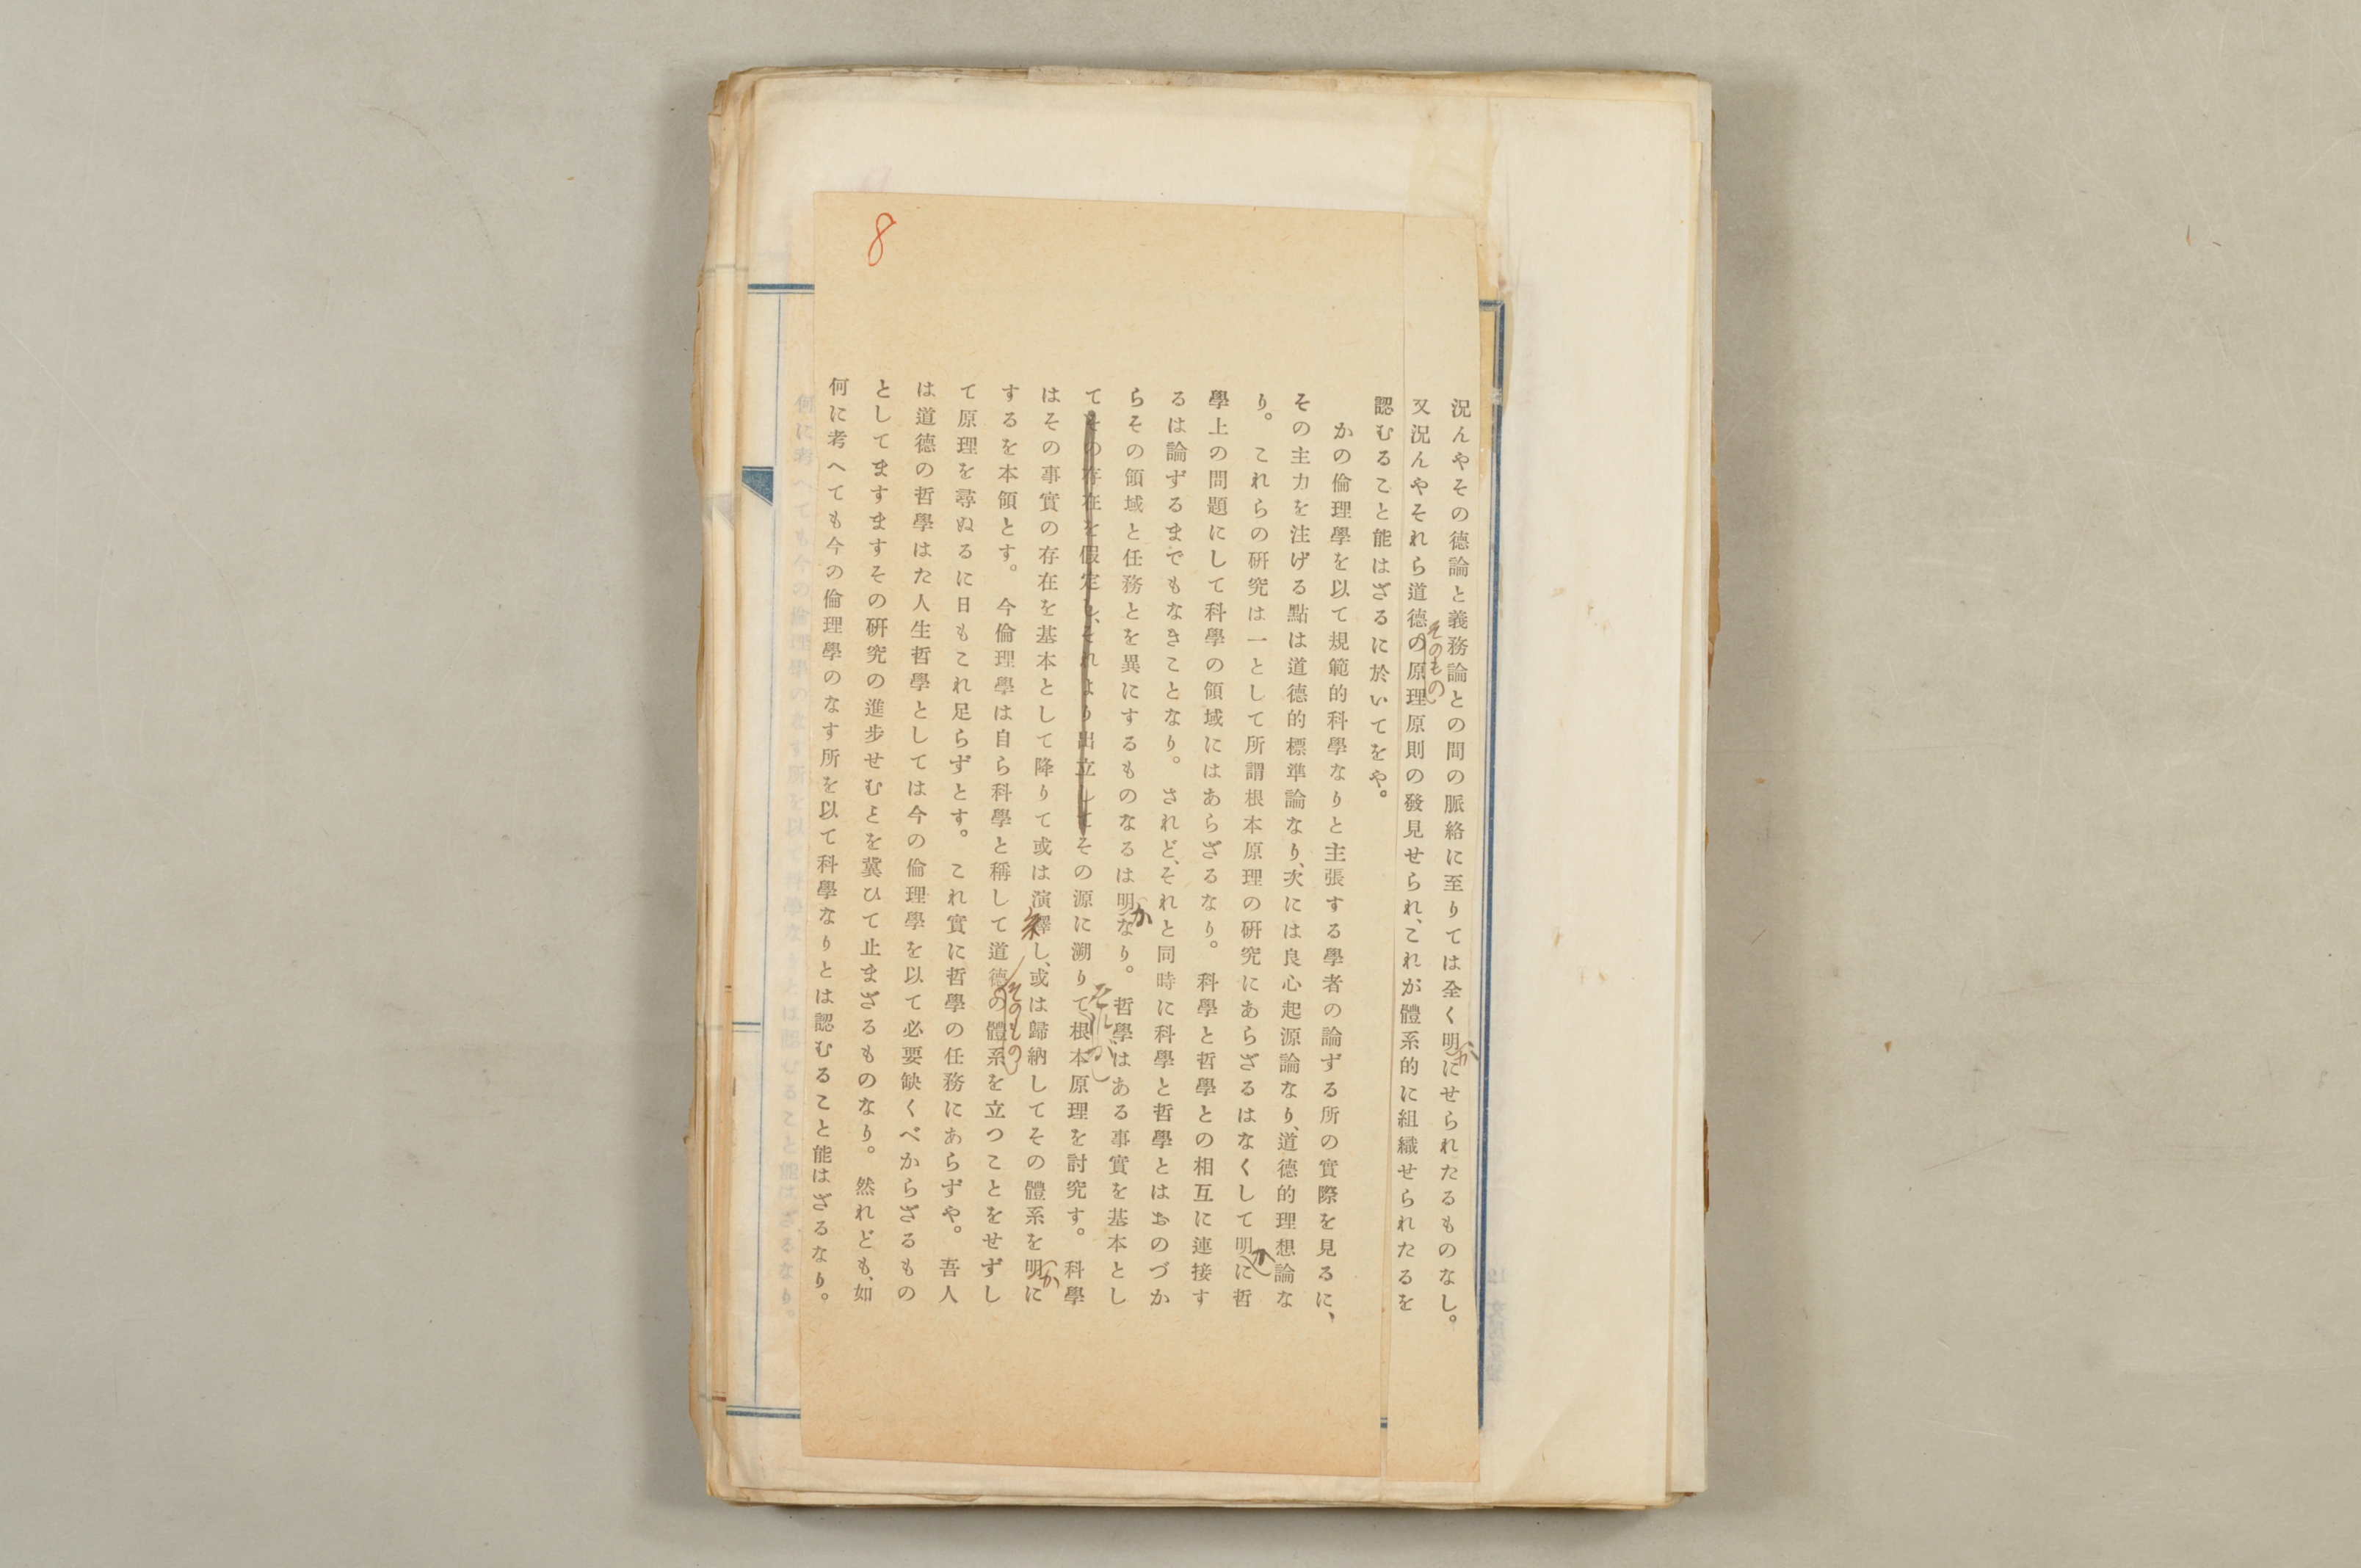 8
況んやその德論と義務論との間の脈絡に至りては全く明かにせられたるものなし。
又況んやそれら道德そのものの原理原則の發見せられ、これが體系的に組織せられたるを
認むること能はざるに於いてをや。
かの倫理學を以て規範的科學なりと主張する學者の論ずる所の實際を見るに、
その主力を注げる點は道德的標準論なり、次には良心起源論なり、道德的理想論な
り。これらの硏究は一として所謂根本原理の硏究にあらざるはなくして明かに哲
學上の問題にして科學の領域にはあらざるなり。科學と哲學との相互に連接す
るは論ずるまでもなきことなり。されど、それと同時に科學と哲學とはおのづか
らその領域と任務とを異にするものなるは明かなり。哲學はある事實を基本とし
てその存在を假定し、それより出立してその源に溯りて根本原理を討究す。科學
はその事實の存在を基本として降りて或は演繹し、或は歸納してその體系を明かに
するを本領とす。今倫理學は自ら科學と稱して道德そのものの體系を立つことをせずし
て原理を尋ぬるに日もこれ足らずとす。これ實に哲學の任務にあらずや。吾人
は道德の哲學はた人生哲學としては今の倫理學を以て必要缺くべからざるもの
としてますますその硏究の進步せむとを冀ひて止まざるものなり。然れども、如
何に考へても今の倫理學のなす所を以て科學なりとは認むること能はざるなり。